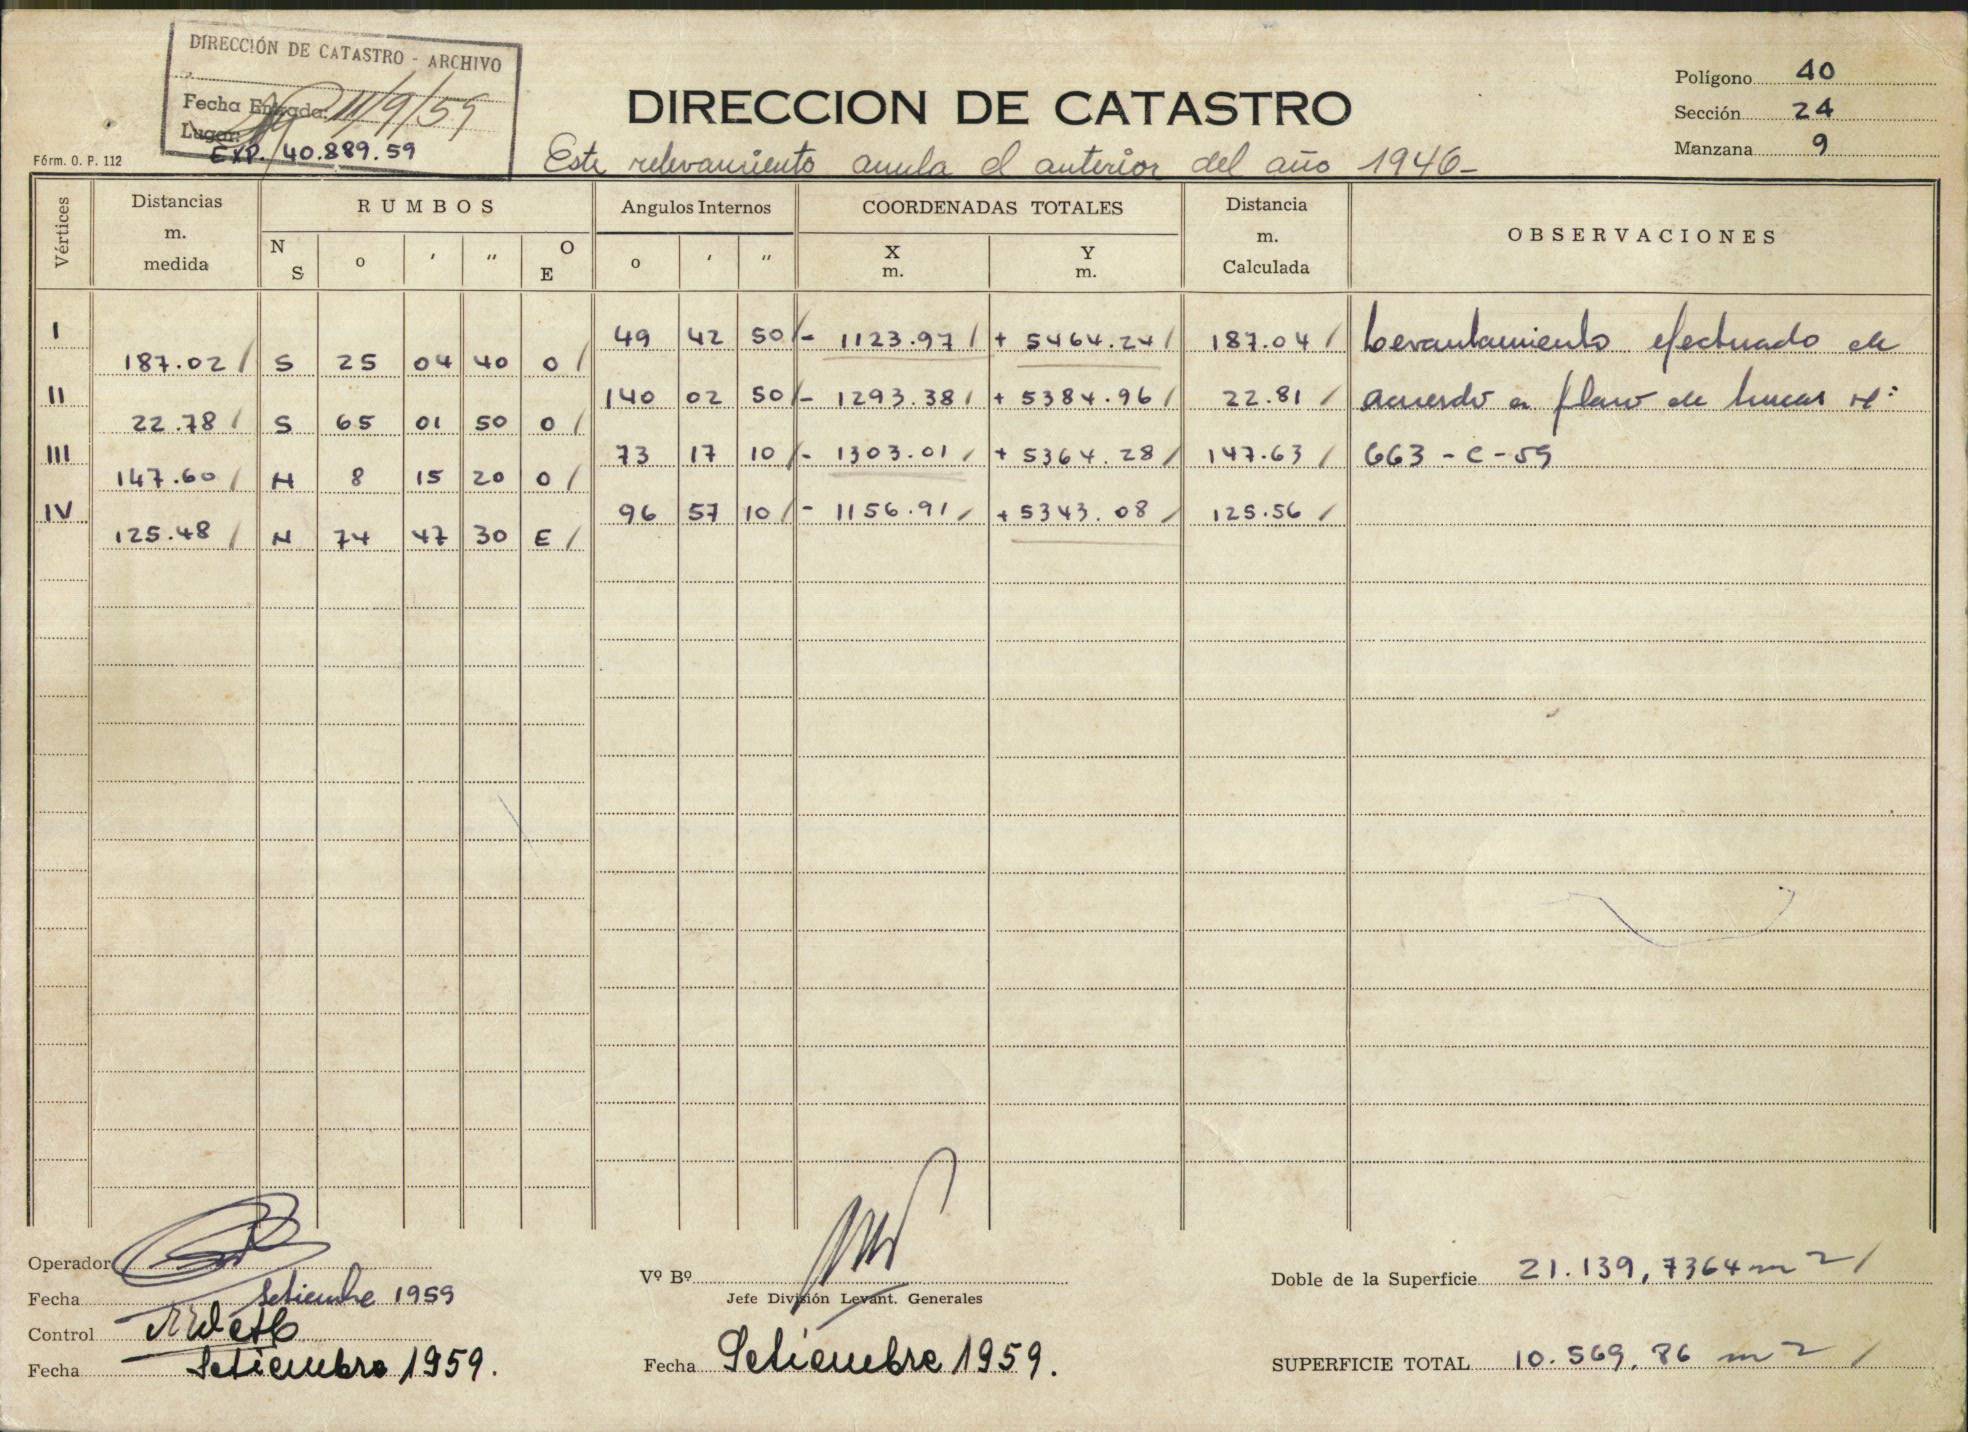 DIRECCIÓN DE CATASTRO - ARCHIVO
Fecha Entrada: 11/9/59
Lugar:
EXP. 40.889.59
Fórm. O. P. 112
DIRECCION DE CATASTRO
Este relevamiento anula el anterior del año 1946-
Polígono 40
Sección 24
Manzana 9
Vértices
Distancias m. medida
RUMBOS
N S
o
'
"
O E
Angulos Internos
o
'
"
COORDENADAS TOTALES
X m.
Y m.
Distancia m. Calculada
OBSERVACIONES
I 49 42 50 / - 1123.97 / + 5464.24 / 187.04 / Levantamiento efectuado de
187.02 / S 25 04 40 O /
II 140 02 50 / - 1293.38 / + 5384.96 / 22.81 / acuerdo a plano de lineas Nº:
22.78 / S 65 01 50 O /
III 73 17 10 / - 1303.01 / + 5364.28 / 147.63 / 663 - C - 59
147.60 / N 8 15 20 O /
IV 96 57 10 / - 1156.91 / + 5343.08 / 125.56 /
125.48 / N 74 47 30 E /
Operador
Fecha Setiembre 1959
Control
Fecha Setiembre 1959.
Vº Bº
Jefe División Levant. Generales
Fecha Setiembre 1959.
Doble de la Superficie 21.139,7364 m2 /
SUPERFICIE TOTAL 10.569,86 m2 /